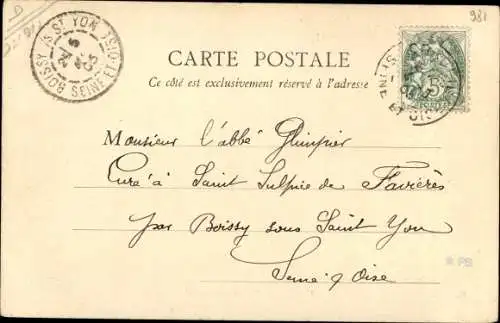 981
CARTE POSTALE
Ce côté est exclusivement réservé à l'adresse
BOISSY /S ST YON SEINE-ET-OISE
5
03
Monsieur l'abbé Glimpier
Curé à Saint Sulpice de Favières
par Boissy sous Saint Yon
Seine & Oise
PB